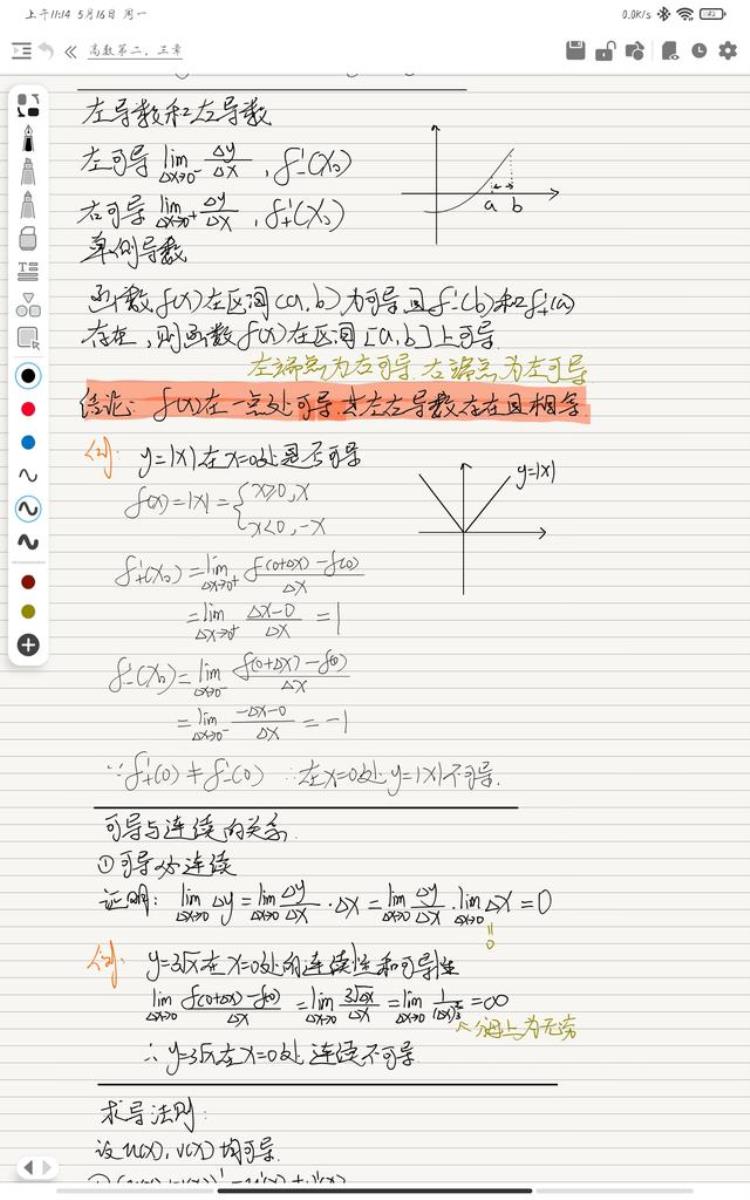 上午11:14 5月16日 周一
0.0K/s
42
高数第二、三章
左导数和左导数
左可导 lim Δx→0⁻ Δy/Δx , f'₋(x₀)
右可导 lim Δx→0⁺ Δy/Δx , f'₊(x₀)
单侧导数
a b
函数f(x)在区间(a,b)为可导且f'₋(b)和f'₊(a)
存在,则函数f(x)在区间[a,b]上可导.
左端点为右可导.右端点为左可导
结论: f(x)在一点处可导.其左右导数存在且相等.
例: y=|x|在x=0处是否可导
y=|x|
f(x)=|x|={x≥0,x
x<0,-x
f'₊(x₀)=lim Δx→0⁺ f(0+Δx)-f(0)/Δx
=lim Δx→0⁺ Δx-0/Δx =1
f'₋(x₀)=lim Δx→0⁻ f(0+Δx)-f(0)/Δx
=lim Δx→0⁻ -Δx-0/Δx =-1
∵f'₊(0)≠f'₋(0) ∴在x=0处y=|x|不可导.
可导与连续的关系.
①可导必连续
证明: lim Δx→0 Δy=lim Δx→0 Δy/Δx · Δx=lim Δx→0 Δy/Δx · lim Δx→0 Δx=0
"
0
例: y=3√x在x=0处的连续性和可导性
lim Δx→0 f(0+Δx)-f(0)/Δx =lim Δx→0 3√Δx/Δx =lim Δx→0 1/(Δx)^⅔ =∞
分母上为无穷
∴y=3√x在x=0处连续不可导.
求导法则:
设u(x),v(x)均可导.